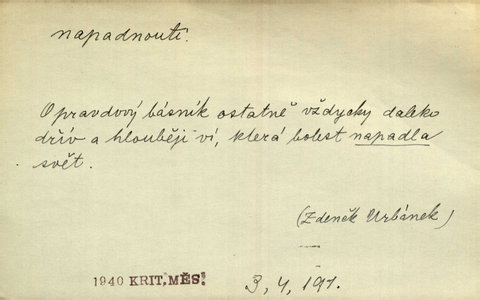 napadnouti.
Opravdový básník ostatně vždycky daleko
dřív a hlouběji ví, která bolest napadla
svět.
(Zdeněk Urbánek)
1940 KRIT. MĚS.
3, 4, 191.